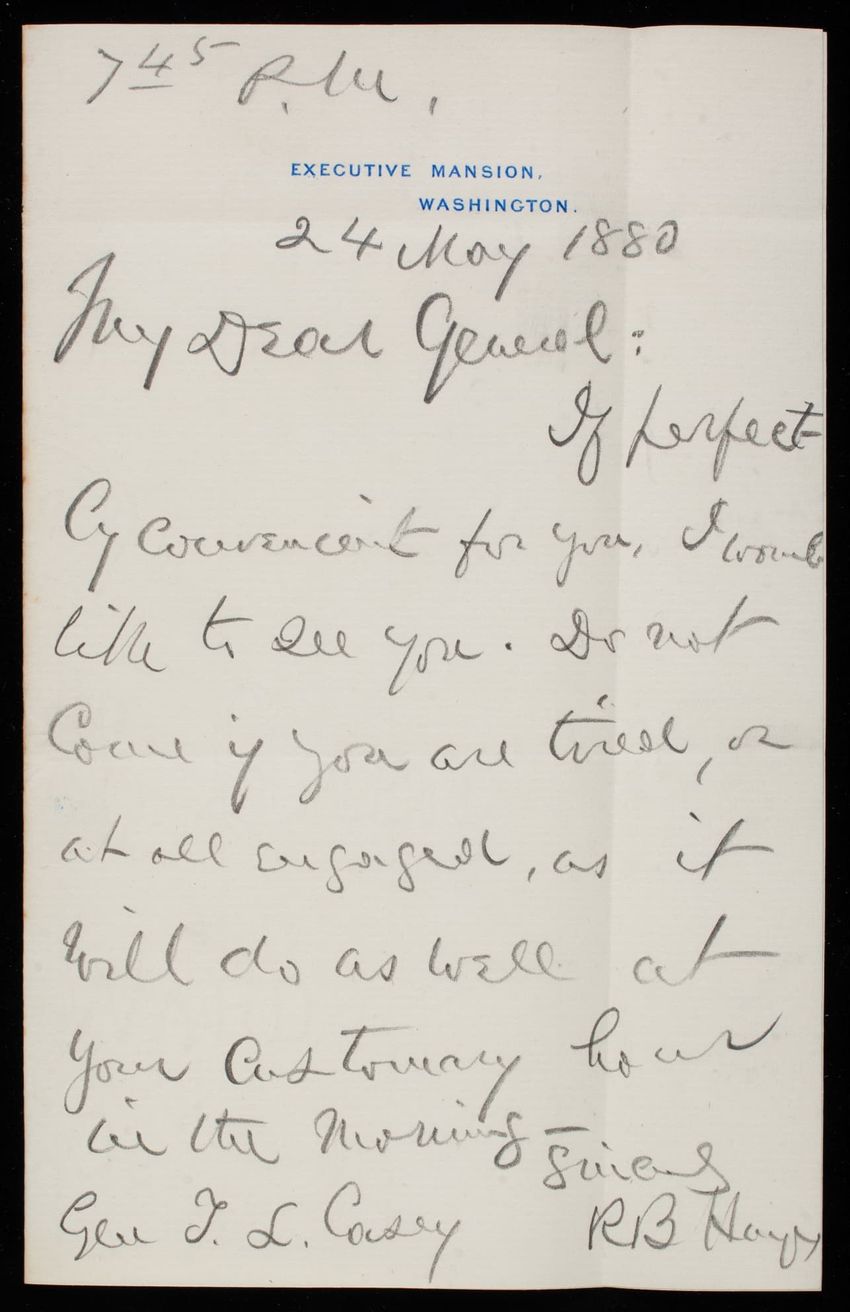 7 45 P.M.
EXECUTIVE MANSION,
WASHINGTON.
24 May 1880
My Dear General:
If perfect
ly convenient for you, I would
like to see you. Do not
Come if you are tired, or
at all engaged, as it
will do as well at
your Customary hour
in the Morning -
Sincerely
Gen T. L. Casey
RB Hayes